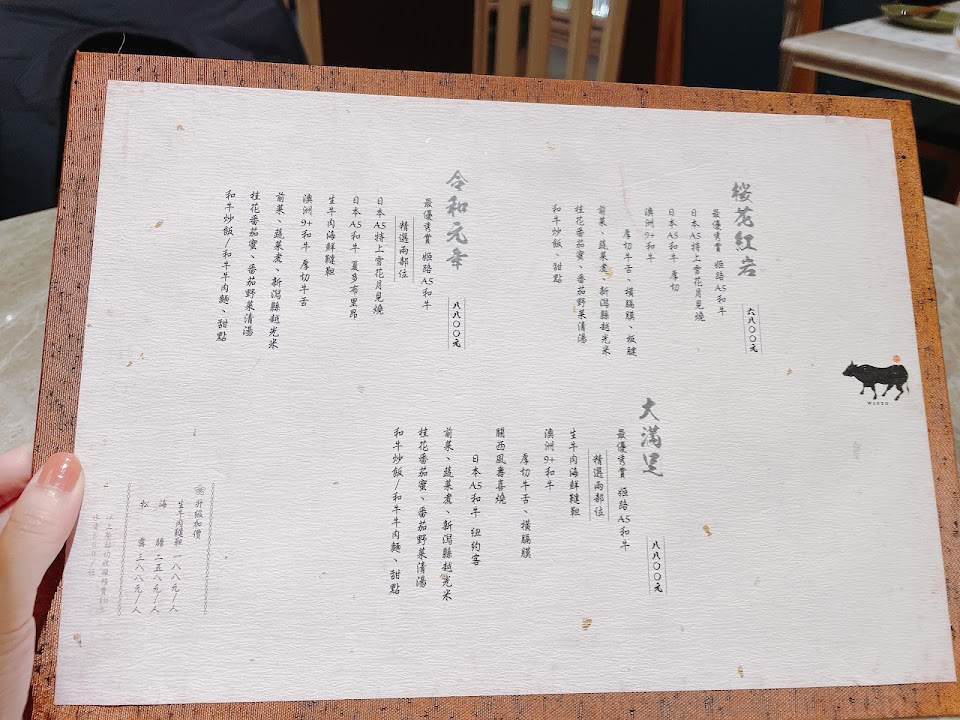 桜花紅岩
六八〇〇元
最優秀賞 姫路A5和牛
日本A5特上雪花月見燒
日本A5和牛 厚切
澳洲9+和牛
厚切牛舌、橫膈膜、板腱
前菜、蔬菜煮、新潟縣越光米
桂花番茄蜜、番茄野菜清湯
和牛炒飯、甜點
令和元年
八八〇〇元
最優秀賞 姫路A5和牛
精選兩部位
日本A5特上雪花月見燒
日本A5和牛 夏多布里昂
生牛肉海鮮韃靼
澳洲9+和牛 厚切牛舌
前菜、蔬菜煮、新潟縣越光米
桂花番茄蜜、番茄野菜清湯
和牛炒飯/和牛牛肉麵、甜點
WAGYU
大滿足
八八〇〇元
最優秀賞 姫路A5和牛
精選兩部位
生牛肉海鮮韃靼
澳洲9+和牛
厚切牛舌、橫膈膜
關西風壽喜燒
日本A5和牛 紐約客
前菜、蔬菜煮、新潟縣越光米
桂花番茄蜜、番茄野菜清湯
和牛炒飯/和牛牛肉麵、甜點
升級加價
生牛肉韃靼 一八八元/人
海膽 二五八元/人
松露 三八八元/人